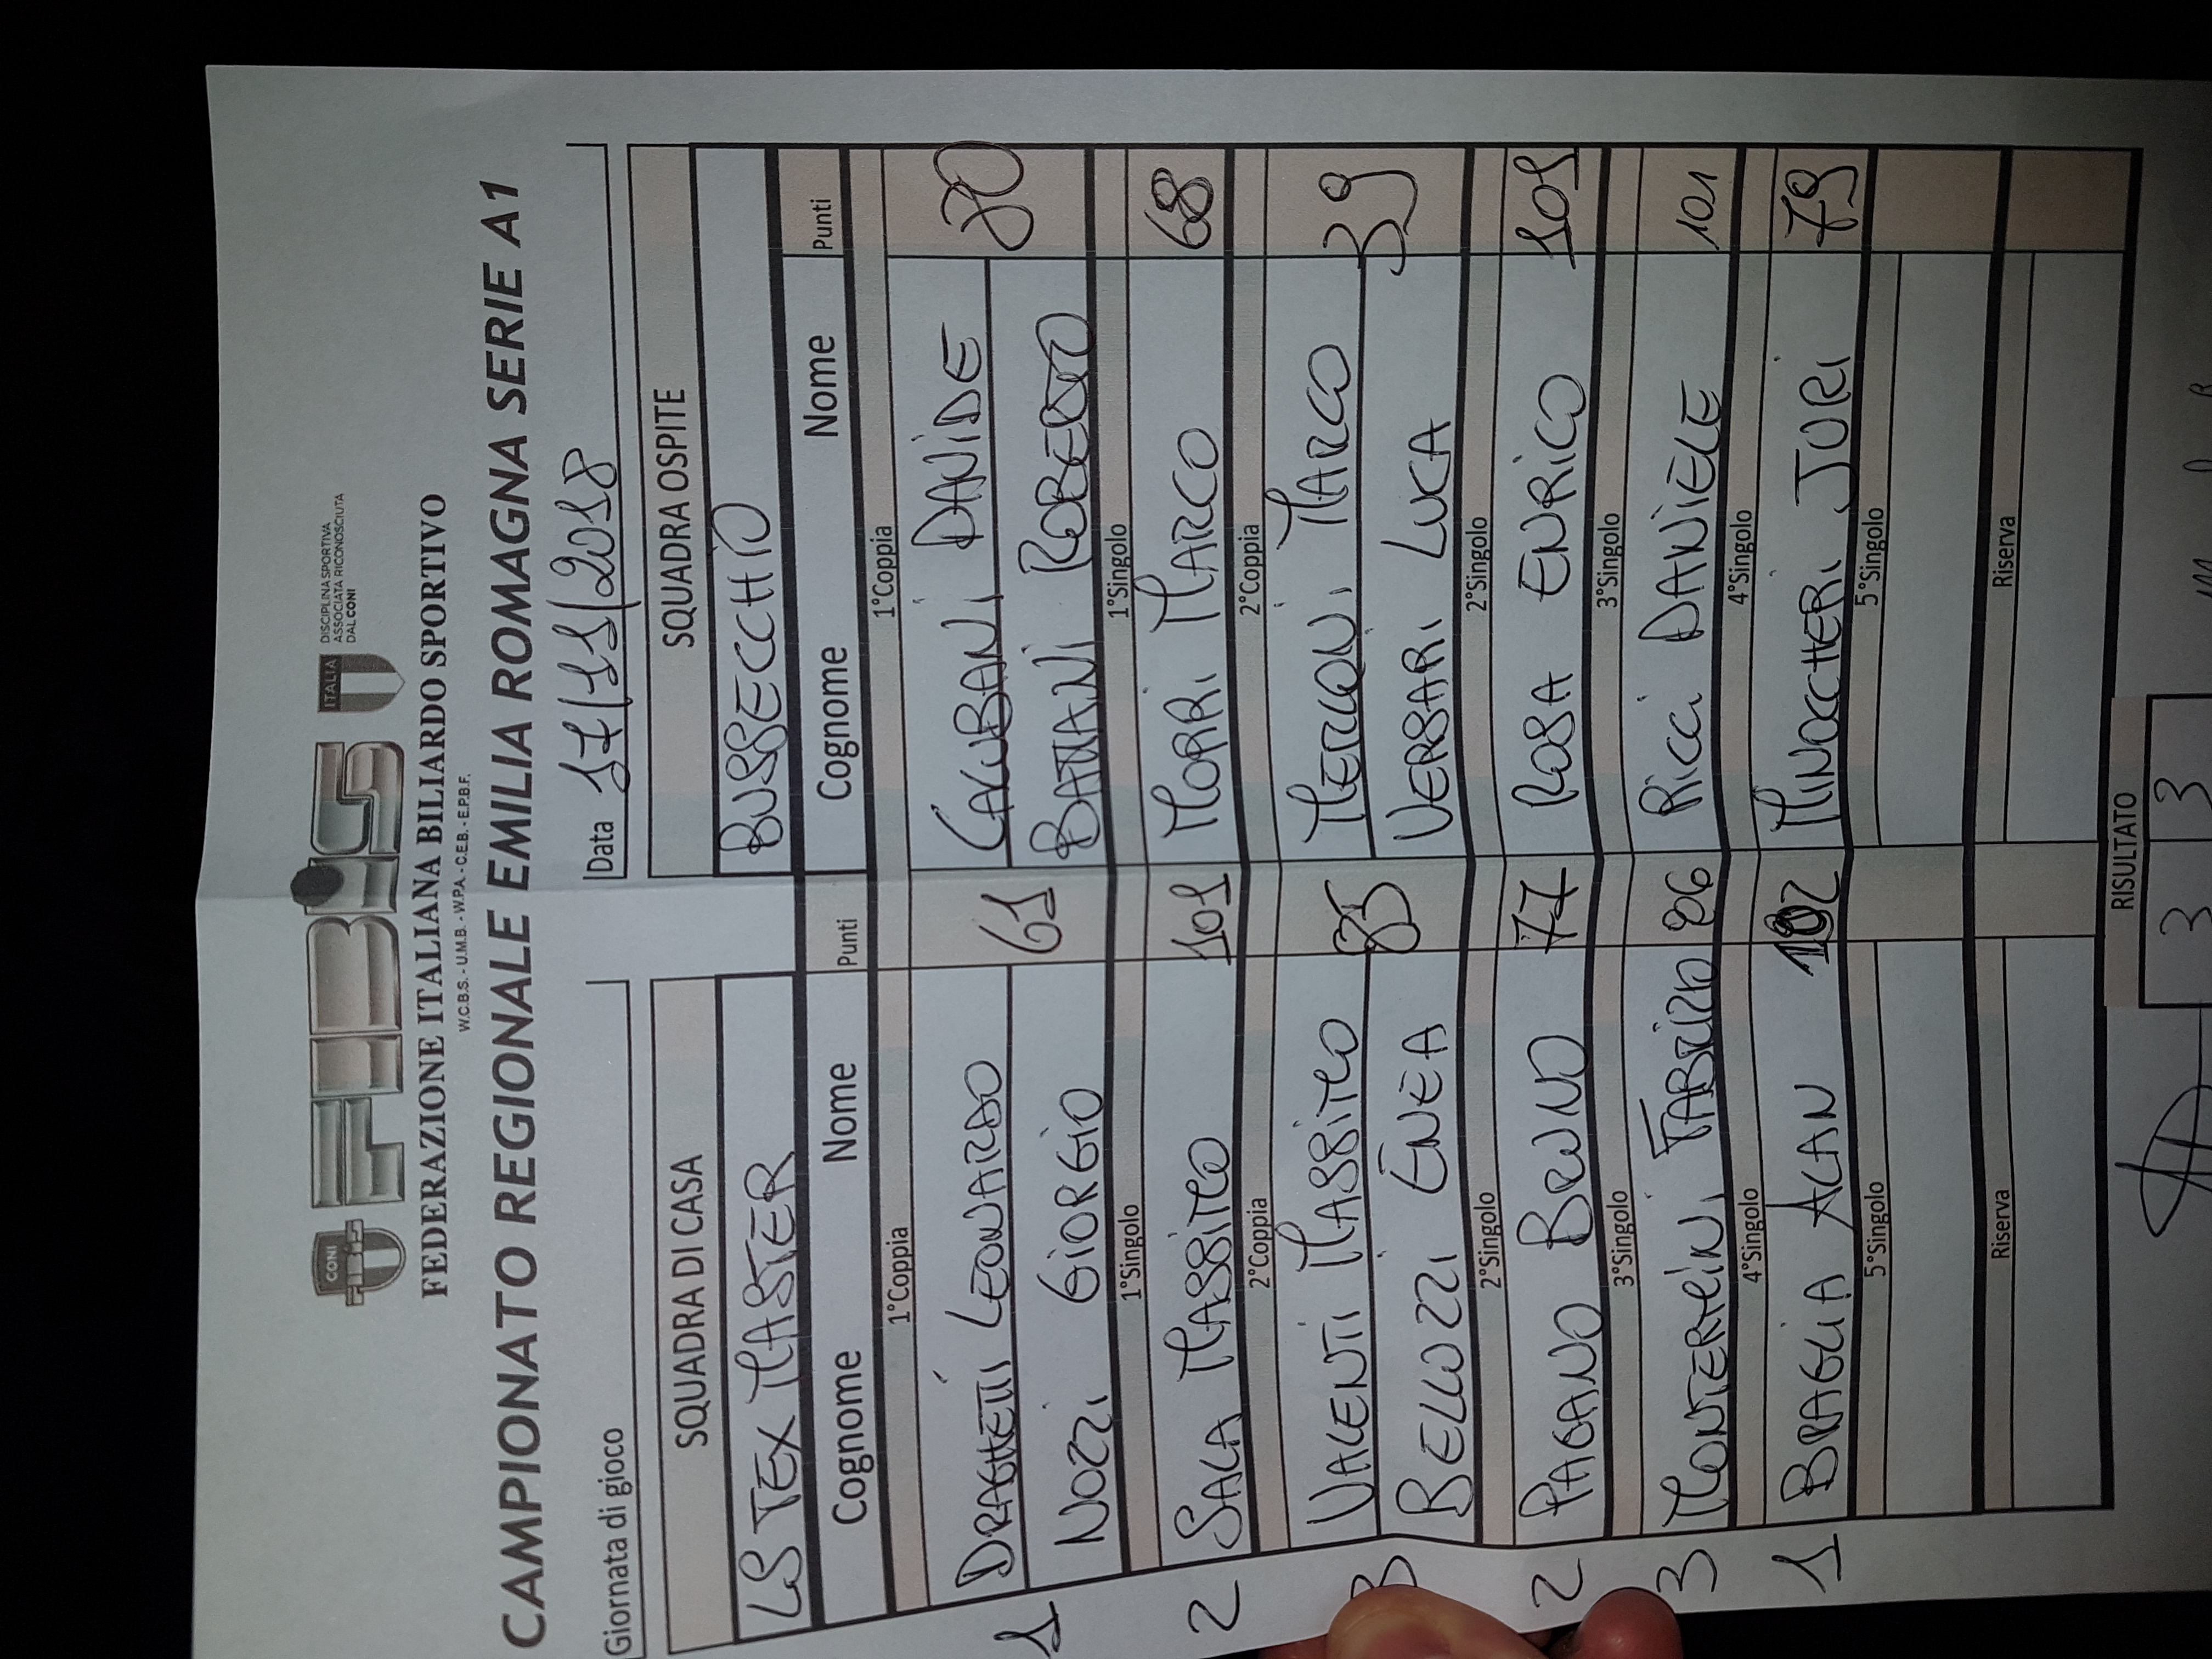 CONI FIBiS ITALIA
DISCIPLINA SPORTIVA
ASSOCIATA RICONOSCIUTA
DAL CONI
FEDERAZIONE ITALIANA BILIARDO SPORTIVO
W.C.B.S. - U.M.B. - W.P.A. - C.E.B. - E.P.B.F.
CAMPIONATO REGIONALE EMILIA ROMAGNA SERIE A1
Giornata di gioco Data 17/11/2018
SQUADRA DI CASA SQUADRA OSPITE
LS TEX MASTER BUSSECCHIO
Cognome Nome Punti Cognome Nome Punti
1°Coppia 1°Coppia
DRAGHETTI LEONARDO CALUBANI DAVIDE
1 NOZZI GIORGIO 61 BATTANI ROBERTO 80
1°Singolo 1°Singolo
2 SALA MASSIMO 101 MORRI MARCO 68
2°Coppia 2°Coppia
VALENTI MASSIMO MERLONI MARCO
3 BELLOZZI ENEA 85 VERSARI LUCA 39
2°Singolo 2°Singolo
2 PAGANO BRUNO 77 ROSA ENRICO 101
3°Singolo 3°Singolo
3 MONTERMINI FABRIZIO 86 RICCI DANIELE 101
4°Singolo 4°Singolo
1 BRAGLIA ALAN 102 MINOCCHERI JURI 79
5°Singolo 5°Singolo
Riserva Riserva
RISULTATO
3 3